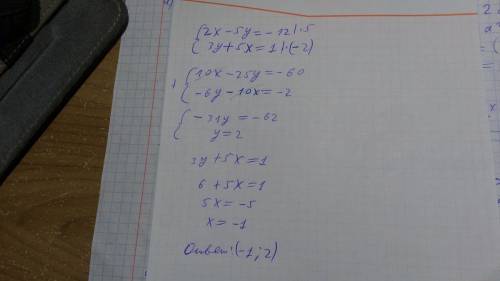 2x-5y=-12|·5
3y+5x=1|·(-2)
10x-25y=-60
-6y-10x=-2
-31y=-62
y=2
3y+5x=1
6+5x=1
5x=-5
x=-1
Ответ:(-1;2)